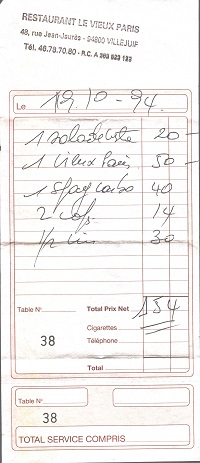 RESTAURANT LE VIEUX PARIS
48, rue Jean-Jaurès - 94800 VILLEJUIF
Tél. 46.78.70.80 - R.C. A 393 823 133
Le 19.10-94.
1 salade 20
1 Vieux Paris 50
1 Spag carbo 40
2 cafs 14
1/2 vin 30
Total Prix Net 154
Cigarettes
Téléphone
Table N°
38
Total
Table N°
38
TOTAL SERVICE COMPRIS